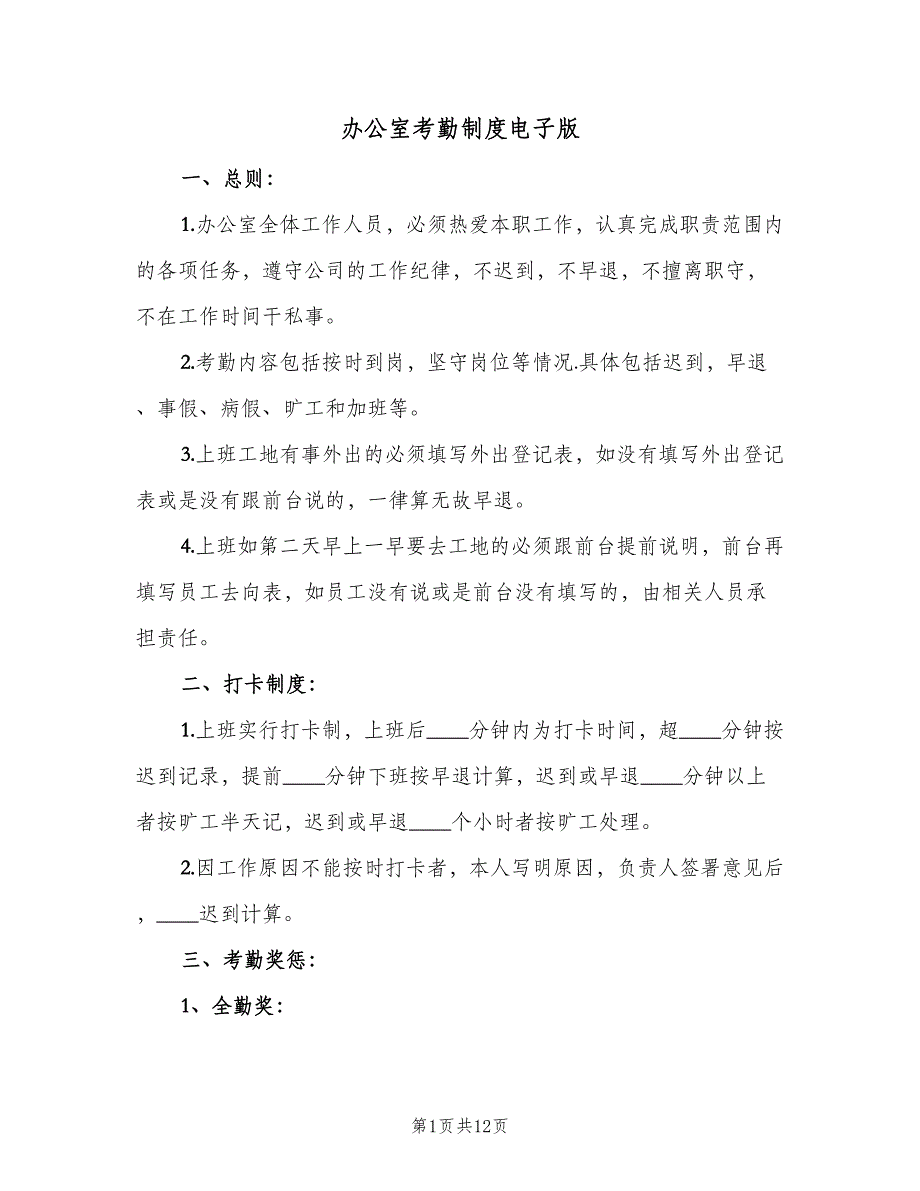 办公室考勤制度电子版
一、总则：
1.办公室全体工作人员，必须热爱本职工作，认真完成职责范围内
的各项任务，遵守公司的工作纪律，不迟到，不早退，不擅离职守，
不在工作时间干私事。
2.考勤内容包括按时到岗，坚守岗位等情况.具体包括迟到，早退
、事假、病假、旷工和加班等。
3.上班工地有事外出的必须填写外出登记表，如没有填写外出登记
表或是没有跟前台说的，一律算无故早退。
4.上班如第二天早上一早要去工地的必须跟前台提前说明，前台再
填写员工去向表，如员工没有说或是前台没有填写的，由相关人员承
担责任。
二、打卡制度：
1.上班实行打卡制，上班后____分钟内为打卡时间，超____分钟按
迟到记录，提前____分钟下班按早退计算，迟到或早退____分钟以上
者按旷工半天记，迟到或早退____个小时者按旷工处理。
2.因工作原因不能按时打卡者，本人写明原因，负责人签署意见后
，____迟到计算。
三、考勤奖惩：
1、全勤奖：
第1页共12页